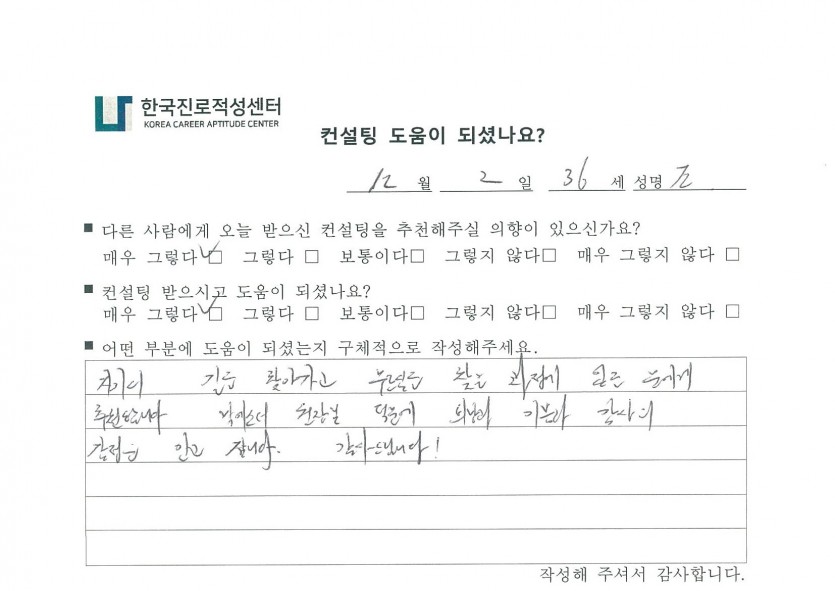 한국진로적성센터
KOREA CAREER APTITUDE CENTER
컨설팅 도움이 되셨나요?
12 월 2 일 36 세 성명
■ 다른 사람에게 오늘 받으신 컨설팅을 추천해주실 의향이 있으신가요?
매우 그렇다 ☑ 그렇다 □ 보통이다□ 그렇지 않다□ 매우 그렇지 않다 □
■ 컨설팅 받으시고 도움이 되셨나요?
매우 그렇다 ☑ 그렇다 □ 보통이다□ 그렇지 않다□ 매우 그렇지 않다 □
■ 어떤 부분에 도움이 되셨는지 구체적으로 작성해주세요.
자기의 길을 찾아가고
추천드립니다 원장님 덕분에 감사의
감정을 안고 갑니다. 감사드립니다!
작성해 주셔서 감사합니다.